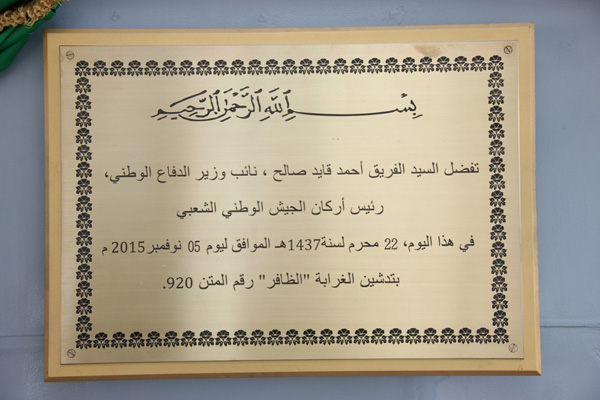 بِسْــــمِ اللَّهِ الرَّحْمَٰنِ الرَّحِيمِ
تفضل السيد الفريق أحمد قايد صالح ، نائب وزير الدفاع الوطني،
رئيس أركان الجيش الوطني الشعبي
في هذا اليوم، 22 محرم لسنة1437هـ الموافق ليوم 05 نوفمبر2015 م
بتدشين الغرابة "الظافر" رقم المتن 920.